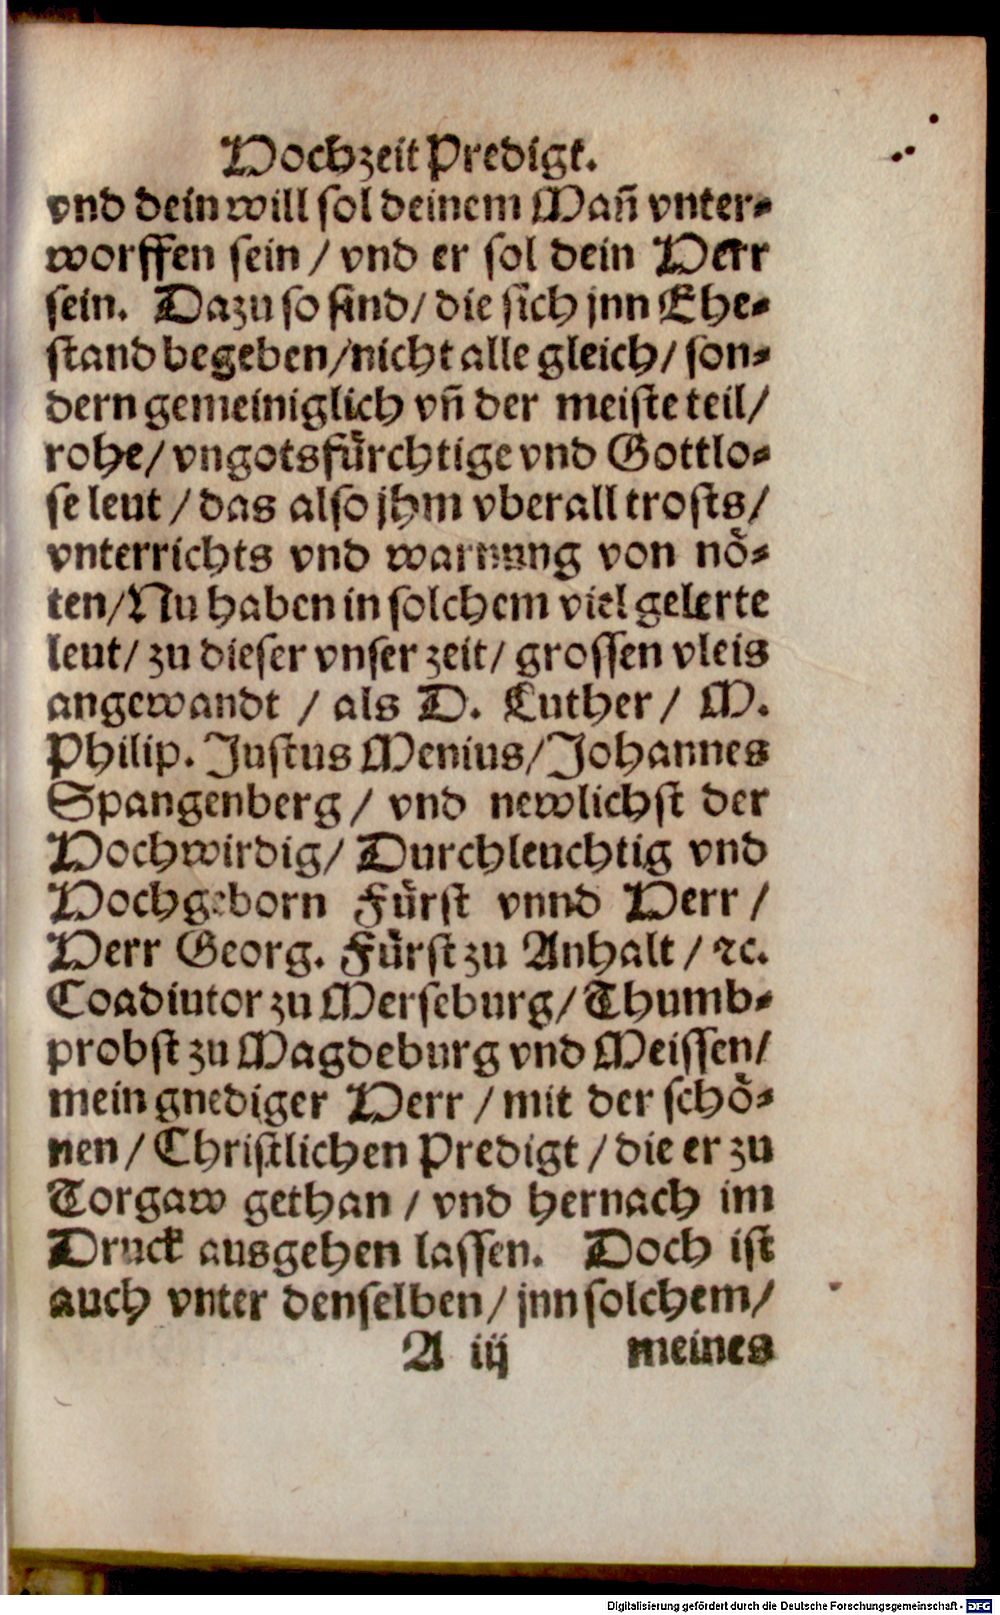 Hochzeit Predigt.
vnd dein will sol deinem Mañ vnter⸗
worffen sein / vnd er sol dein Herr
sein. Dazu so sind / die sich jnn Ehe⸗
stand begeben / nicht alle gleich / son⸗
dern gemeiniglich vñ der meiste teil /
rohe / vngotsfürchtige vnd Gottlo⸗
se leut / das also jhm vberall trosts /
vnterrichts vnd warnung von nö⸗
ten / Nu haben in solchem viel gelerte
leut / zu dieser vnser zeit / grossen vleis
angewandt / als D. Luther / M.
Philip. Justus Menius / Johannes
Spangenberg / vnd newlichst der
Hochwirdig / Durchleuchtig vnd
Hochgeborn Fürst vnnd Herr /
Herr Georg. Fürst zu Anhalt / ꝛc.
Coadiutor zu Merseburg / Thumb⸗
probst zu Magdeburg vnd Meissen /
mein gnediger Herr / mit der schö⸗
nen / Christlichen Predigt / die er zu
Torgaw gethan / vnd hernach im
Druck ausgehen lassen. Doch ist
auch vnter denselben / jnn solchem /
A iij meines
Digitalisierung gefördert durch die Deutsche Forschungsgemeinschaft - DFG